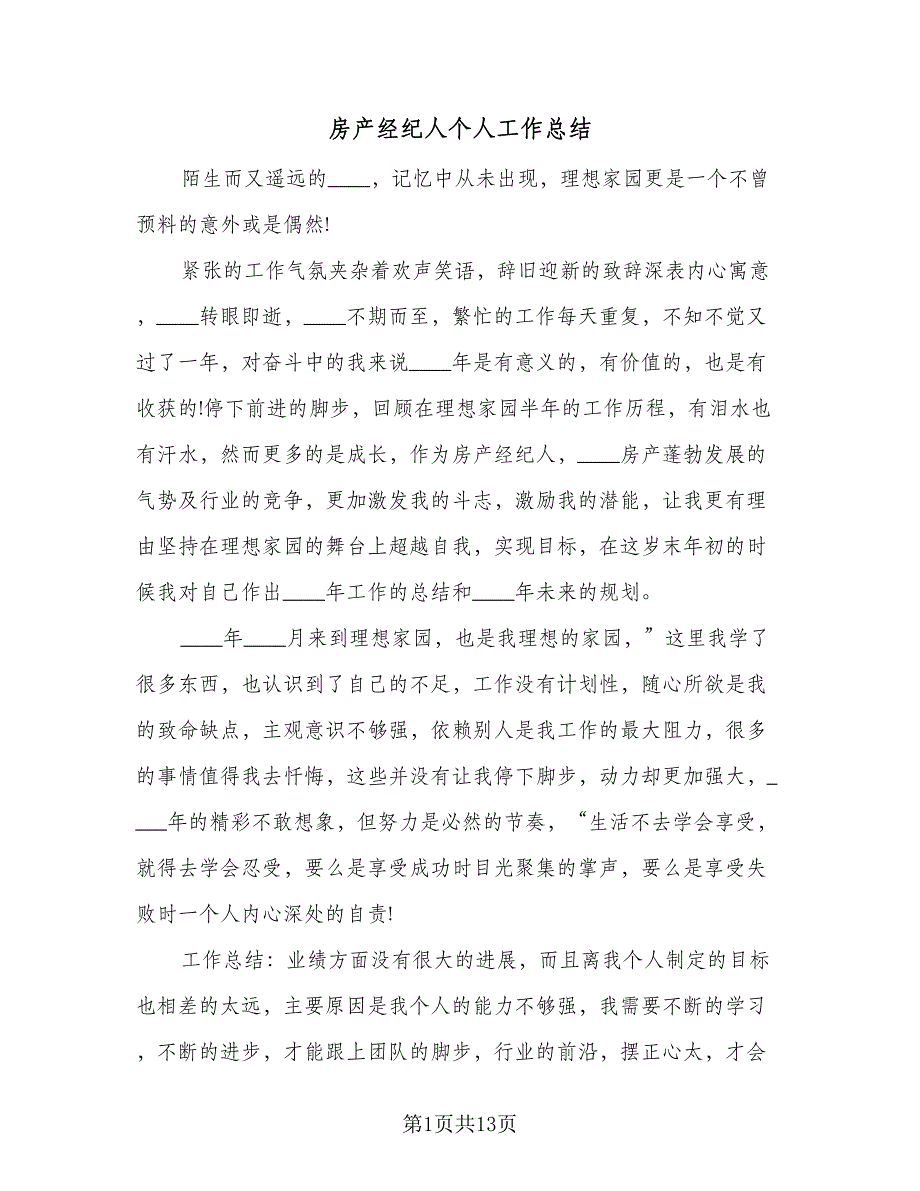 房产经纪人个人工作总结
陌生而又遥远的____，记忆中从未出现，理想家园更是一个不曾
预料的意外或是偶然!
紧张的工作气氛夹杂着欢声笑语，辞旧迎新的致辞深表内心寓意
，____转眼即逝，____不期而至，繁忙的工作每天重复，不知不觉又
过了一年，对奋斗中的我来说____年是有意义的，有价值的，也是有
收获的!停下前进的脚步，回顾在理想家园半年的工作历程，有泪水也
有汗水，然而更多的是成长，作为房产经纪人，____房产蓬勃发展的
气势及行业的竞争，更加激发我的斗志，激励我的潜能，让我更有理
由坚持在理想家园的舞台上超越自我，实现目标，在这岁末年初的时
候我对自己作出____年工作的总结和____年未来的规划。
____年____月来到理想家园，也是我理想的家园，”这里我学了
很多东西，也认识到了自己的不足，工作没有计划性，随心所欲是我
的致命缺点，主观意识不够强，依赖别人是我工作的最大阻力，很多
的事情值得我去忏悔，这些并没有让我停下脚步，动力却更加强大，_
___年的精彩不敢想象，但努力是必然的节奏，“生活不去学会享受，
就得去学会忍受，要么是享受成功时目光聚集的掌声，要么是享受失
败时一个人内心深处的自责!
工作总结：业绩方面没有很大的进展，而且离我个人制定的目标
也相差的太远，主要原因是我个人的能力不够强，我需要不断的学习
，不断的进步，才能跟上团队的脚步，行业的前沿，摆正心太，才会
第1页共13页